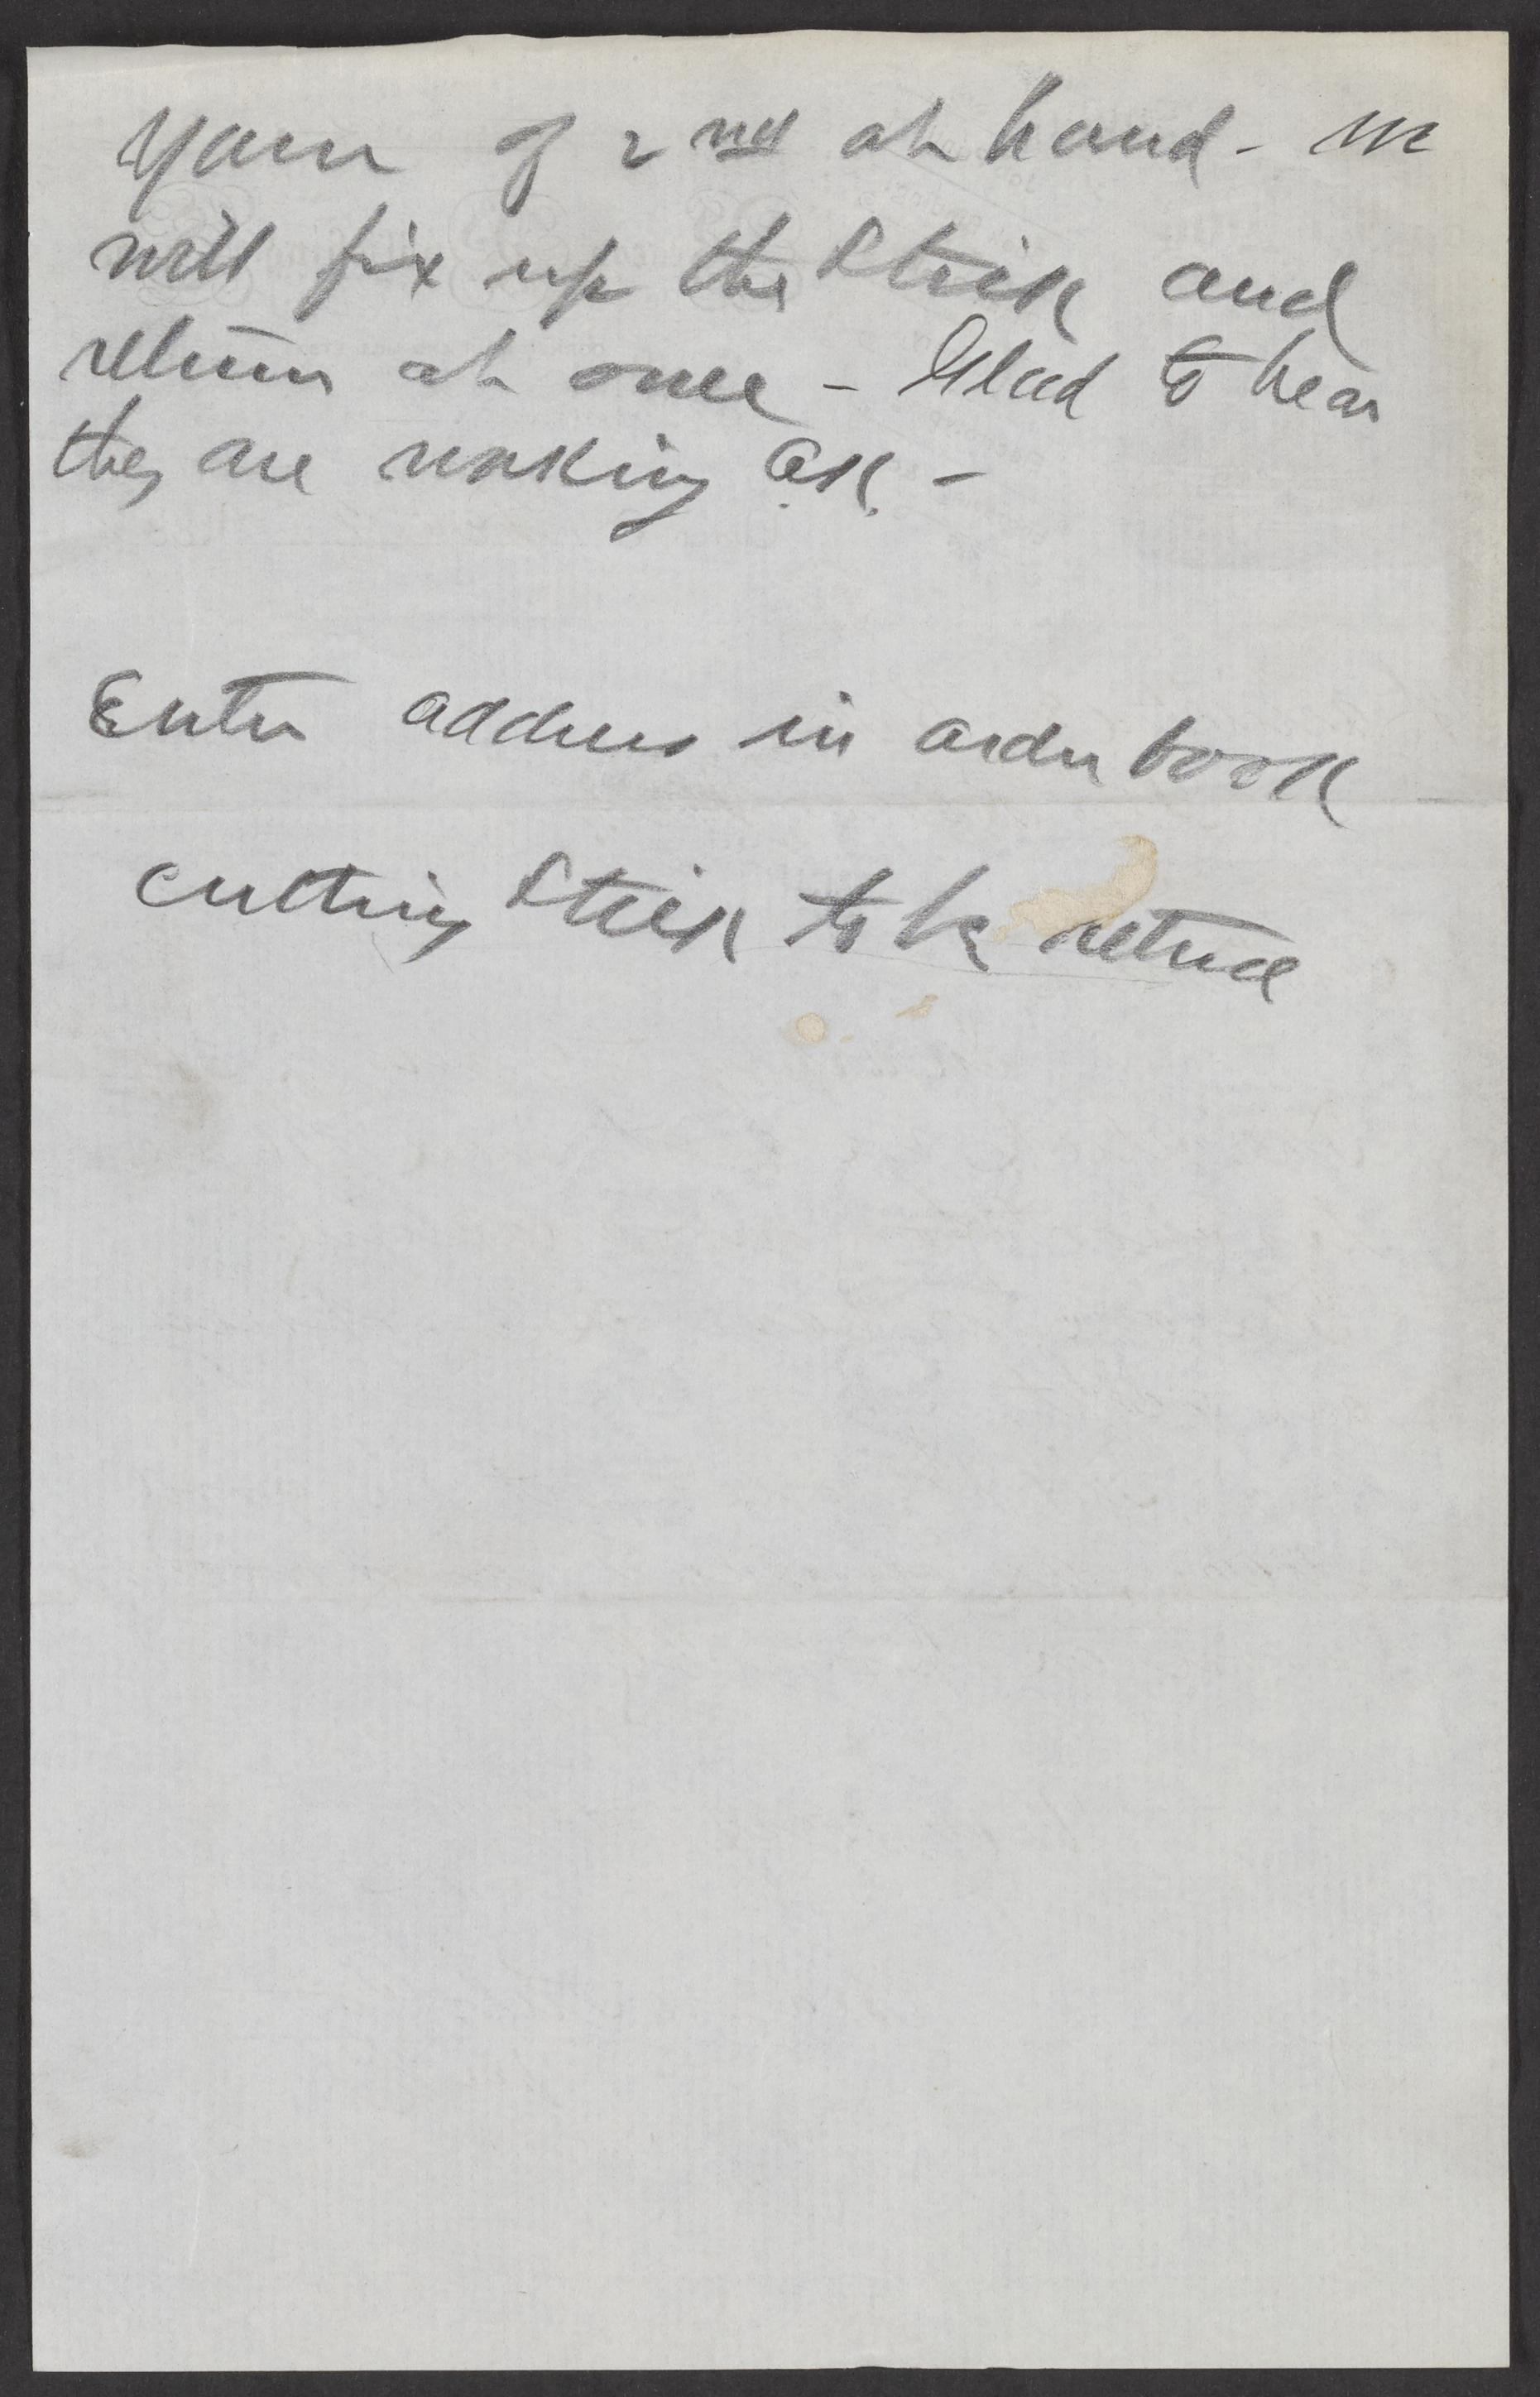 Yours of 2nd at hand - We
will fix up the Stick and
return at once - Glad to hear
they are working O.K. -
Enter address in order book
Cutting Stick to be retured